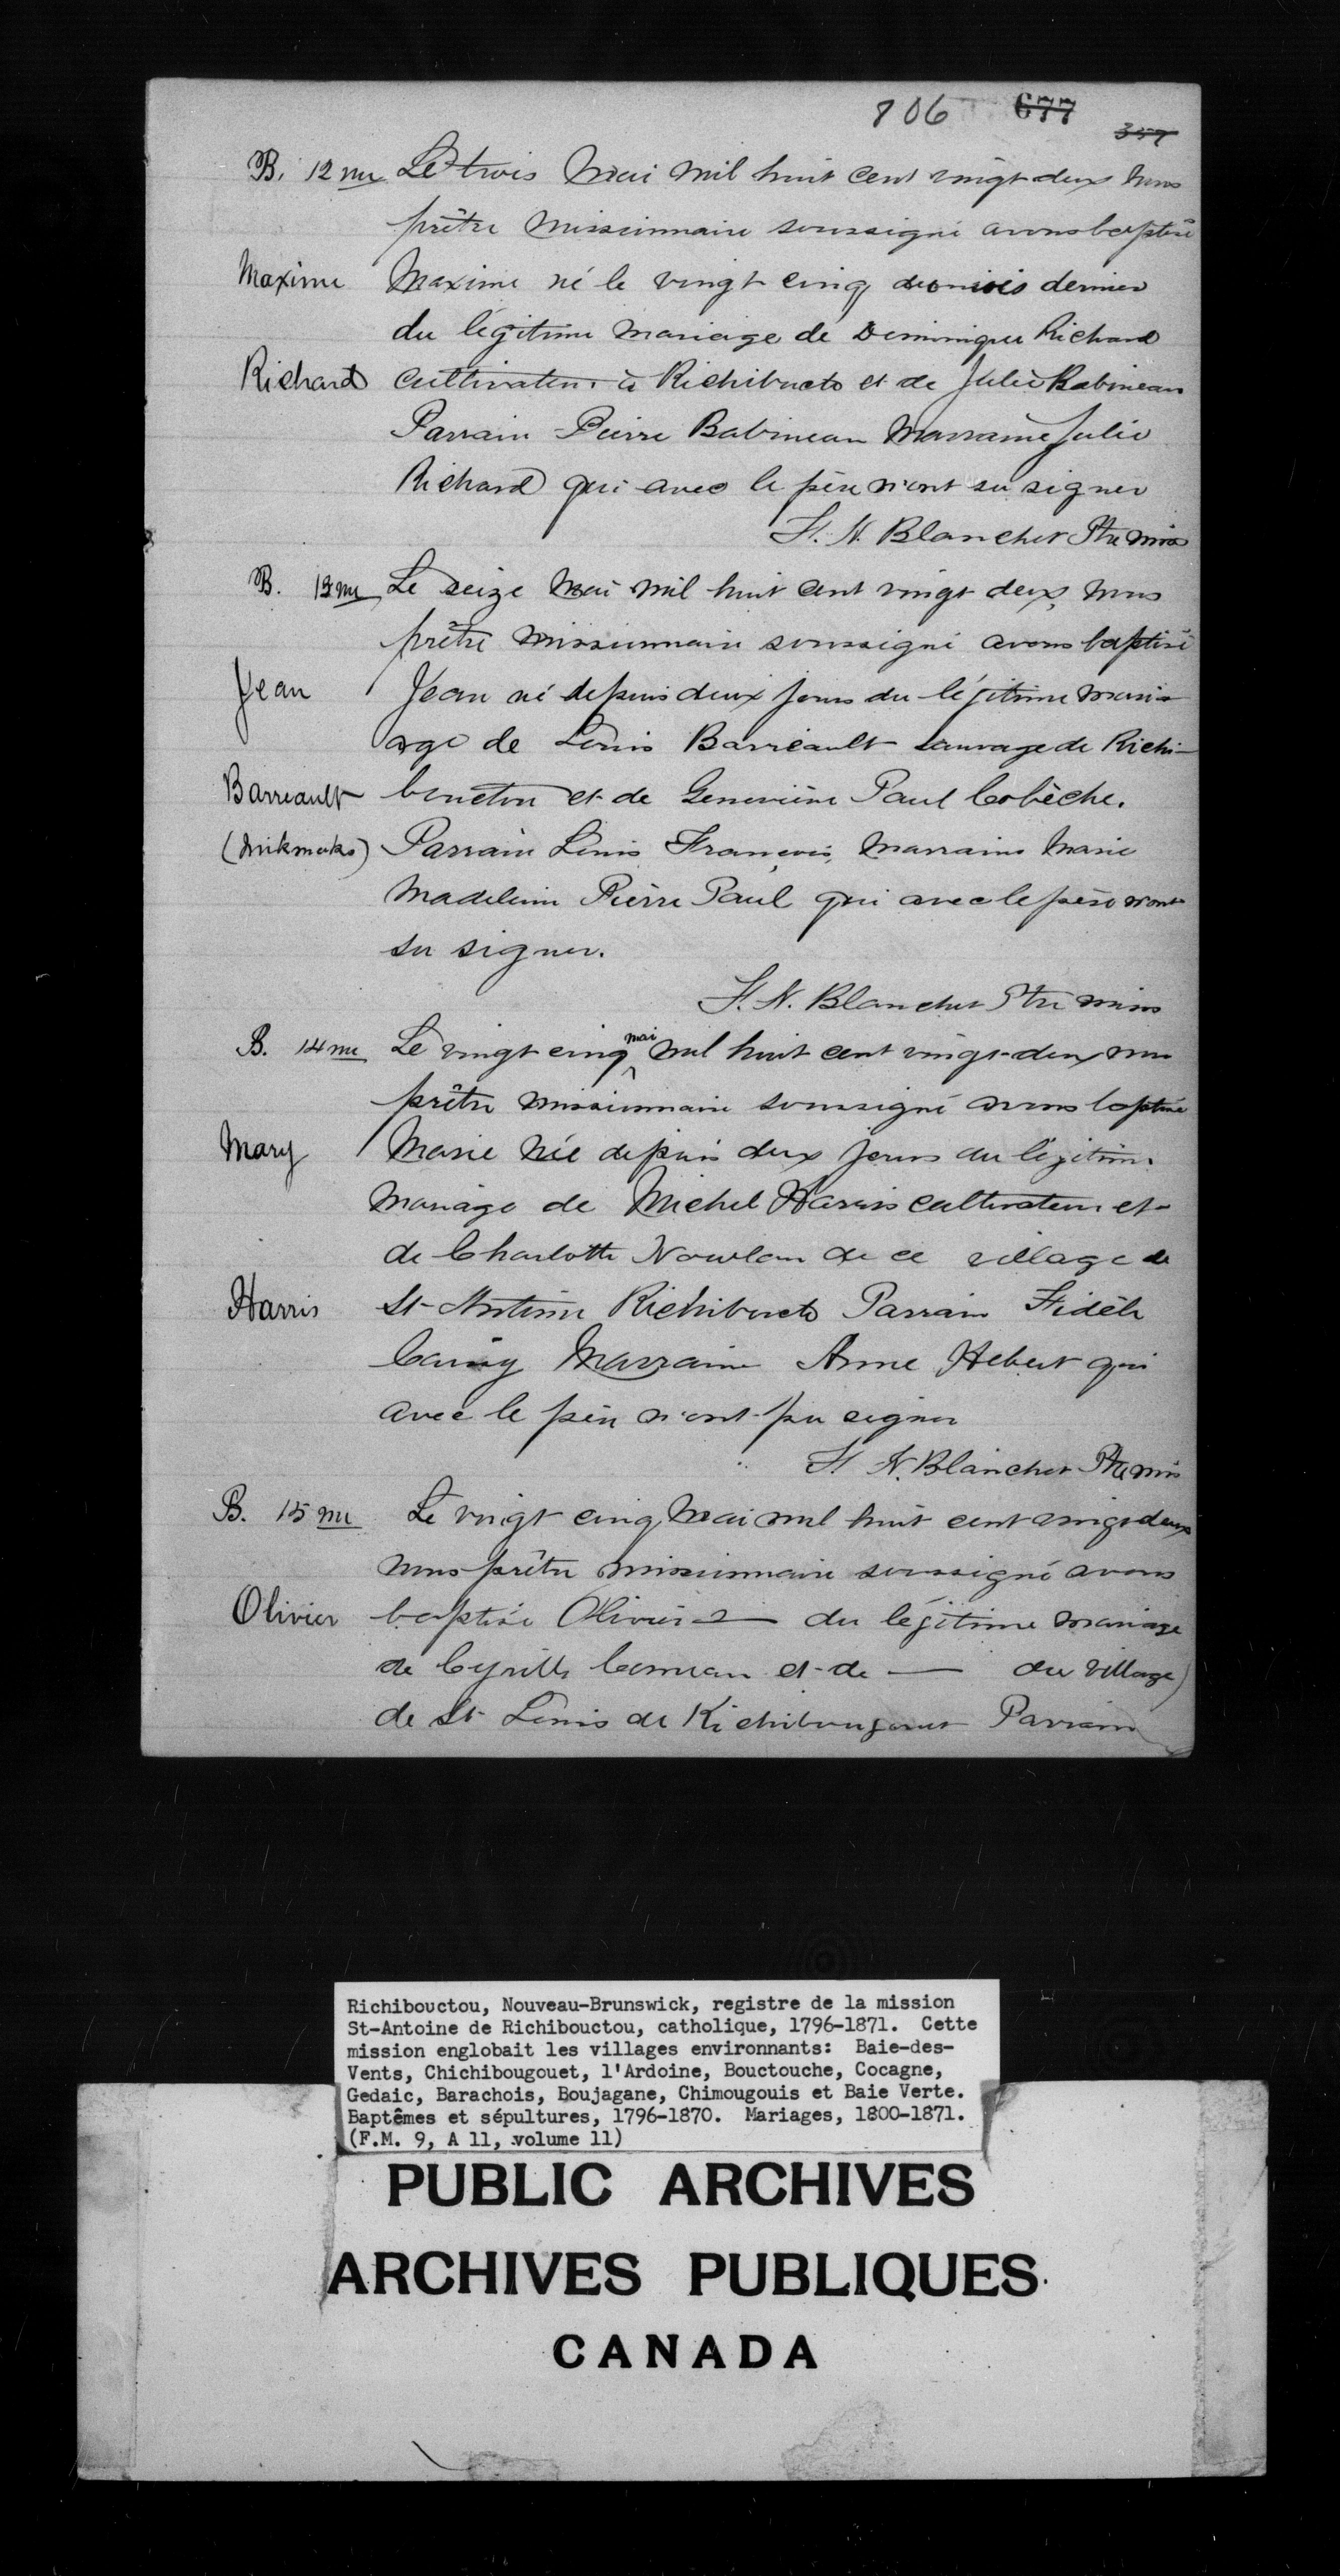 806 677 357
B. 12me Le trois Mai mil huit cent vingt deux nous
prêtre missionnaire soussigné avons baptisé
Maxime Maxime né le vingt cinq du mois dernier
du légitime mariage de Dominique Richard
Richard cultivateur à Richibucto et de Julie Babineau
Parrain Pierre Babineau Marraine Julie
Richard qui avec le père n'ont su signer
F. N. Blanchet Ptre miss
B. 13me Le seize Mai mil huit cent vingt deux, nous
prêtre missionnaire soussigné avons baptisé
Jean Jean né depuis deux jours du légitime mari-
age de Louis Barreault sauvage de Richi-
Barreault bouctou et de Geneviève Paul Cobèche.
(Mikmaks) Parrain Louis François, Marraine Marie
Madeleine Pierre Paul qui avec le père n'ont
su signer.
F. N. Blanchet Ptre miss
B. 14me Le vingt cinq mai mil huit cent vingt-deux nous
prêtre missionnaire soussigné avons baptisé
Mary Marie née depuis deux jours du légitime
mariage de Michel Harris cultivateur et
de Charlotte Nowlan de ce village de
Harris St-Antoine Richibucto Parrain Fidèle
Marraine Anne Hebert qui
avec le père n'ont pu signer
F. N. Blanchet Ptre mis
B. 15me Le vingt cinq Mai mil huit cent vingt deux
nous prêtre missionnaire soussigné avons
Olivier baptisé Olivier — du légitime mariage
de Cyrille Comeau et de — du village
de St Louis de Parrain
Richibouctou, Nouveau-Brunswick, registre de la mission
St-Antoine de Richibouctou, catholique, 1796-1871. Cette
mission englobait les villages environnants: Baie-des-
Vents, Chichibougouet, l'Ardoine, Bouctouche, Cocagne,
Gedaic, Barachois, Boujagane, Chimougouis et Baie Verte.
Baptêmes et sépultures, 1796-1870. Mariages, 1800-1871.
(F.M. 9, A 11, volume 11)
PUBLIC ARCHIVES
ARCHIVES PUBLIQUES
CANADA